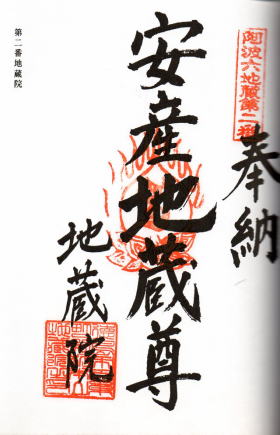 阿波六地蔵第二番
奉納
安産地蔵尊
地蔵院
第二番地蔵院